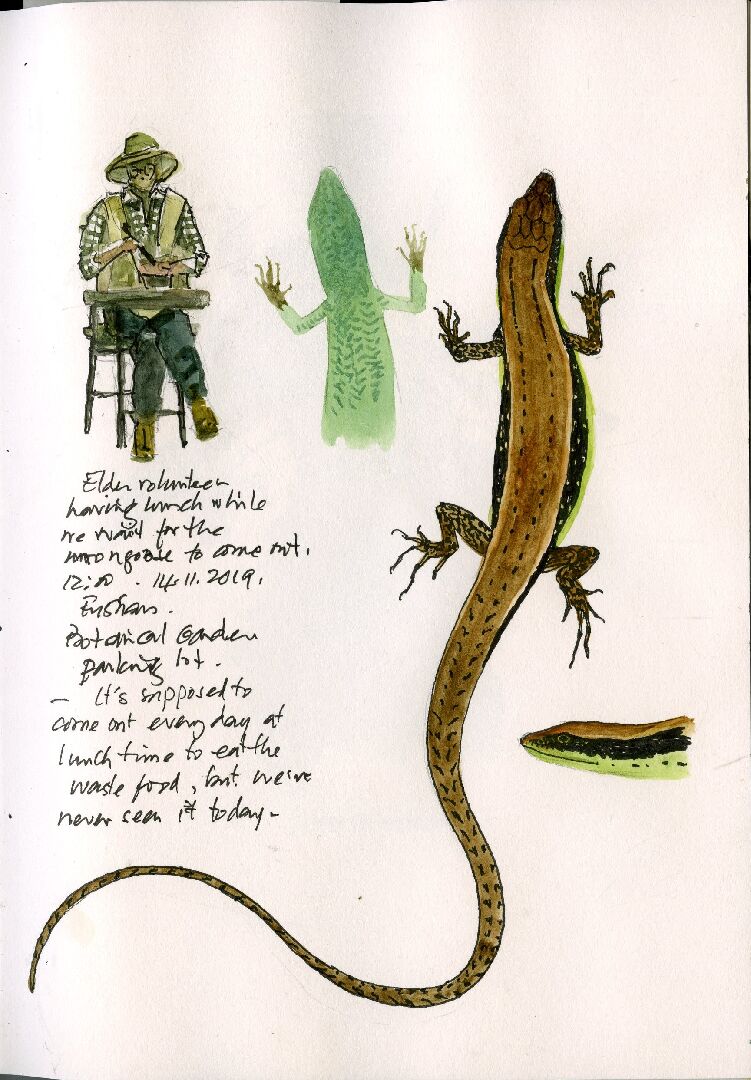 Elder volunteer
having lunch while
we wait for the
mongoose to come out.
12:00 . 14.11.2019.
Fushan.
Botanical Garden
parking lot.
— It's supposed to
come out every day at
lunch time to eat the
waste food, but we've
never seen it today-